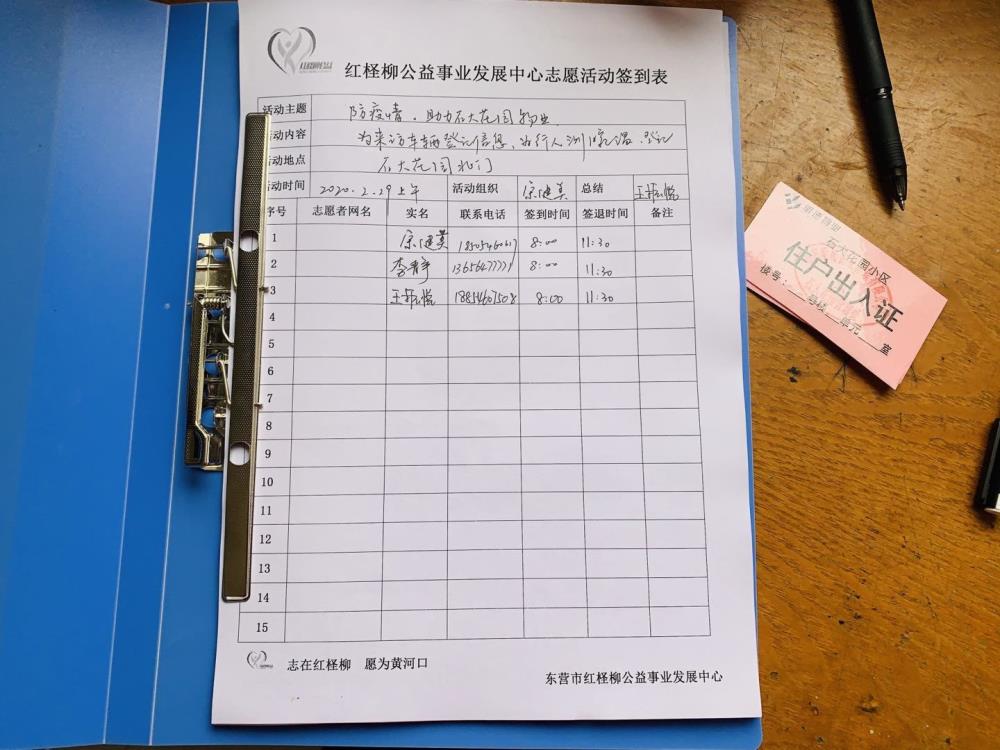 红柽柳公益事业发展中心志愿活动签到表
活动主题 防疫情，助力石大花园物业
活动内容 为来访车辆登记信息、为行人测体温、登记
活动地点 石大花园北门
活动时间 2020.2.29上午 活动组织 宗健美 总结
序号 志愿者网名 实名 联系电话 签到时间 签退时间 备注
1 8:00 11:30
2 8:00 11:30
3 18854607508 8:00 11:30
4
5
6
7
8
9
10
11
12
13
14
15
志在红柽柳 愿为黄河口
东营市红柽柳公益事业发展中心
石大花园小区
住户出入证
楼号：__号楼__单元__室